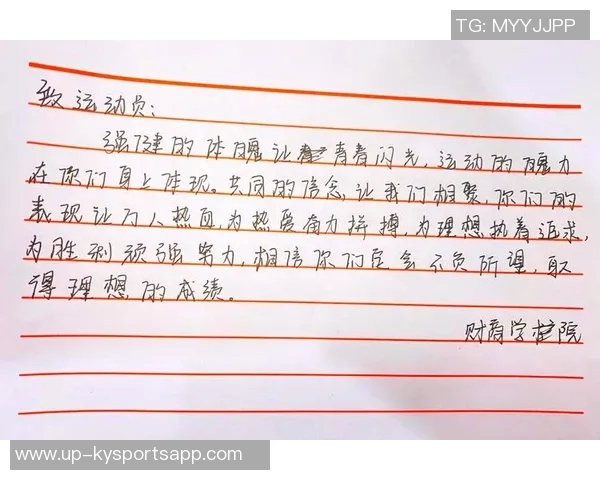 TG: MYYJJPP
致运动员:
强健的体魄让青春闪光,运动的魄力
在你们身上体现。共同的信念,让我们相聚,你们的
表现让万人热血,为热爱奋力拼搏,为理想执着追求,
为胜利顽强努力,相信你们定会不负所望,取
得理想的成绩。
财商学院
www.up-kysportsapp.com